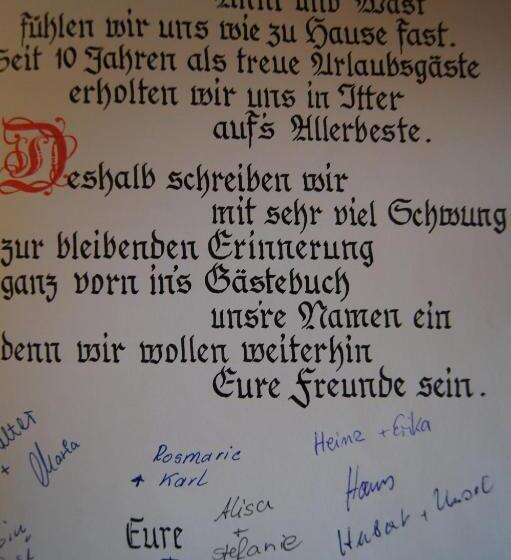 und Wast
fühlen wir uns wie zu Hause fast.
Seit 10 Jahren als treue Urlaubsgäste
erholten wir uns in Itter
auf's Allerbeste.
Deshalb schreiben wir
mit sehr viel Schwung
zur bleibenden Erinnerung
ganz vorn in's Gästebuch
uns're Namen ein
denn wir wollen weiterhin
Eure Freunde sein.
+ Maria
Rosmarie
+ Karl
Heinz + Erika
Hans
Eure
Alisa
+
Stefanie